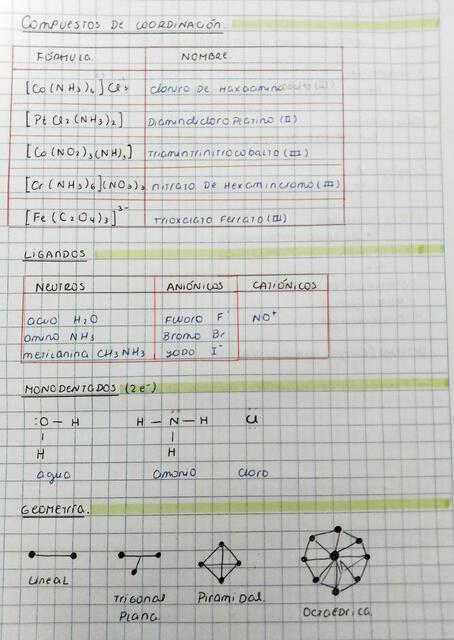 COMPUESTOS DE COORDINACIÓN.
FÓRMULA NOMBRE
[Co(NH3)6]Cl3 cloruro De Haxaamino cobalto (III)
[PtCl2(NH3)2] Diamindicloro Platino (II)
[Co(NO2)3(NH)3] Triamintrinitrocobalto (III)
[Cr(NH3)6](NO3)3 nitrato De Hexamincromo (III)
[Fe(C2O4)3]3- Trioxalato Ferrato (III)
LIGANDOS
NEUTROS ANIÓNICOS CATIÓNICOS
aquo H2O Fluoro F- NO+
amino NH3 Bromo Br
metilanina CH3NH3 yodo I-
MONODENTADOS (2e-)
:O — H H — N — H Cl
H H
agua amonio cloro
GEOMETRÍA.
Lineal Trigonal Piramidal. Octaédrica.
Plana